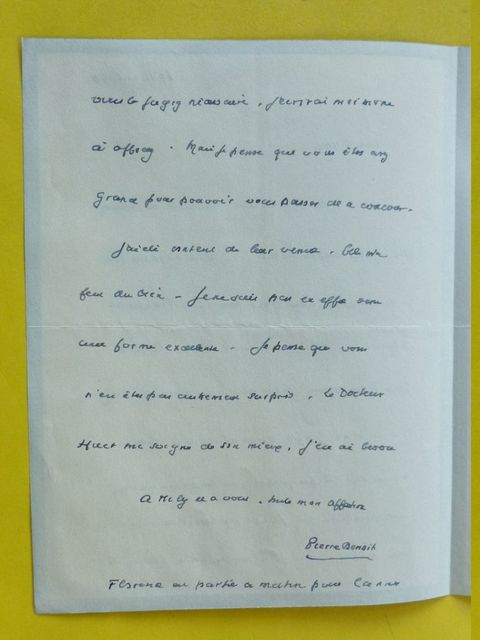 vous le jugez nécessaire, j'écrirai moi même
à . Mais je pense que vous êtes assez
grand pour pouvoir vous passer de ce concours.
J'ai été content de leur venue. Cela m'a
fait du bien. Je ne suis pas en effet dans
une forme excellente. Je pense que vous
n'en êtes pas autrement surpris. Le Docteur
Huet me soigne de son mieux. J'en ai besoin
A et à vous, toute mon affection
Pierre Benoit
est partie ce matin pour Cannes